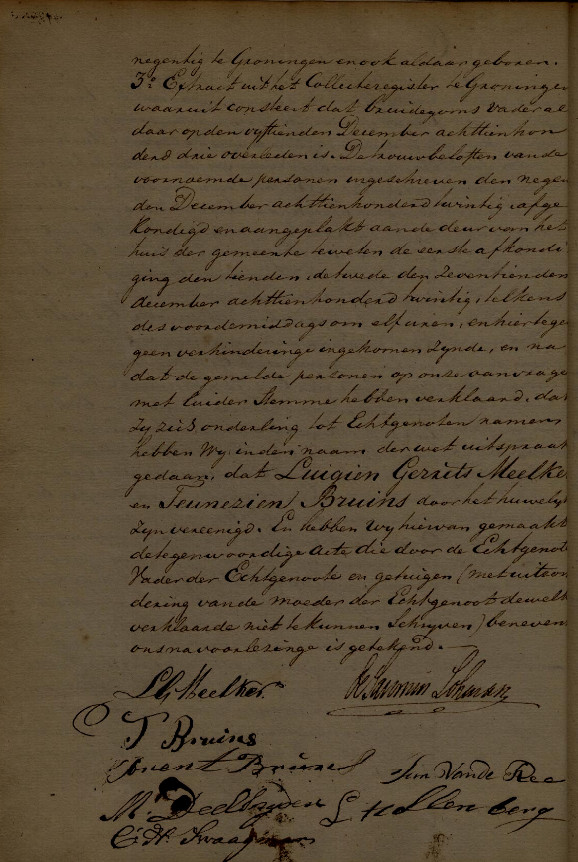 negentig te Groningen en ook aldaar geboren.
3o Extract uit het Collecteregister te Groningen
waaruit consteert dat bruidegoms vader al
daar op den vyftienden December achttienhon
derd drie overleeden is. De trouwbeloften van de
voornoemde personen ingeschreven den negen
den December achttienhonderd twintig, afge
kondigd en aangeplakt aan de deur van het
huis der gemeente te weten de eerste afkondi
ging den tienden, de twede den zeventienden
december achttienhonderd twintig, telkens
des voordemiddags om elf uren, en hiertegen
geen verhinderinge ingekomen zynde, en na
dat de gemelde personen op onze aanvrage
met luider stemme hebben verklaard, dat
zy zich onderling tot Echtgenoten namen
hebben Wy, in den naam der wet uitspraak
gedaan, dat Luigien Gerrits Meelker
en Teunezien Bruins door het huwelyk
zyn vereenigd. En hebben wy hiervan gemaakt
de tegenwoordige Acte die door de Echtgenoten
Vader der Echtgenoote en getuigen (met uitzon
dering van de moeder der Echtgenoot dewelke
verklaarde niet te kunnen schryven) benevens
ons na voorlezinge is getekend.
LG Meelker de Savornin Lohman
T Bruins
Bruins Jan Van de Ree
L Hollenberg